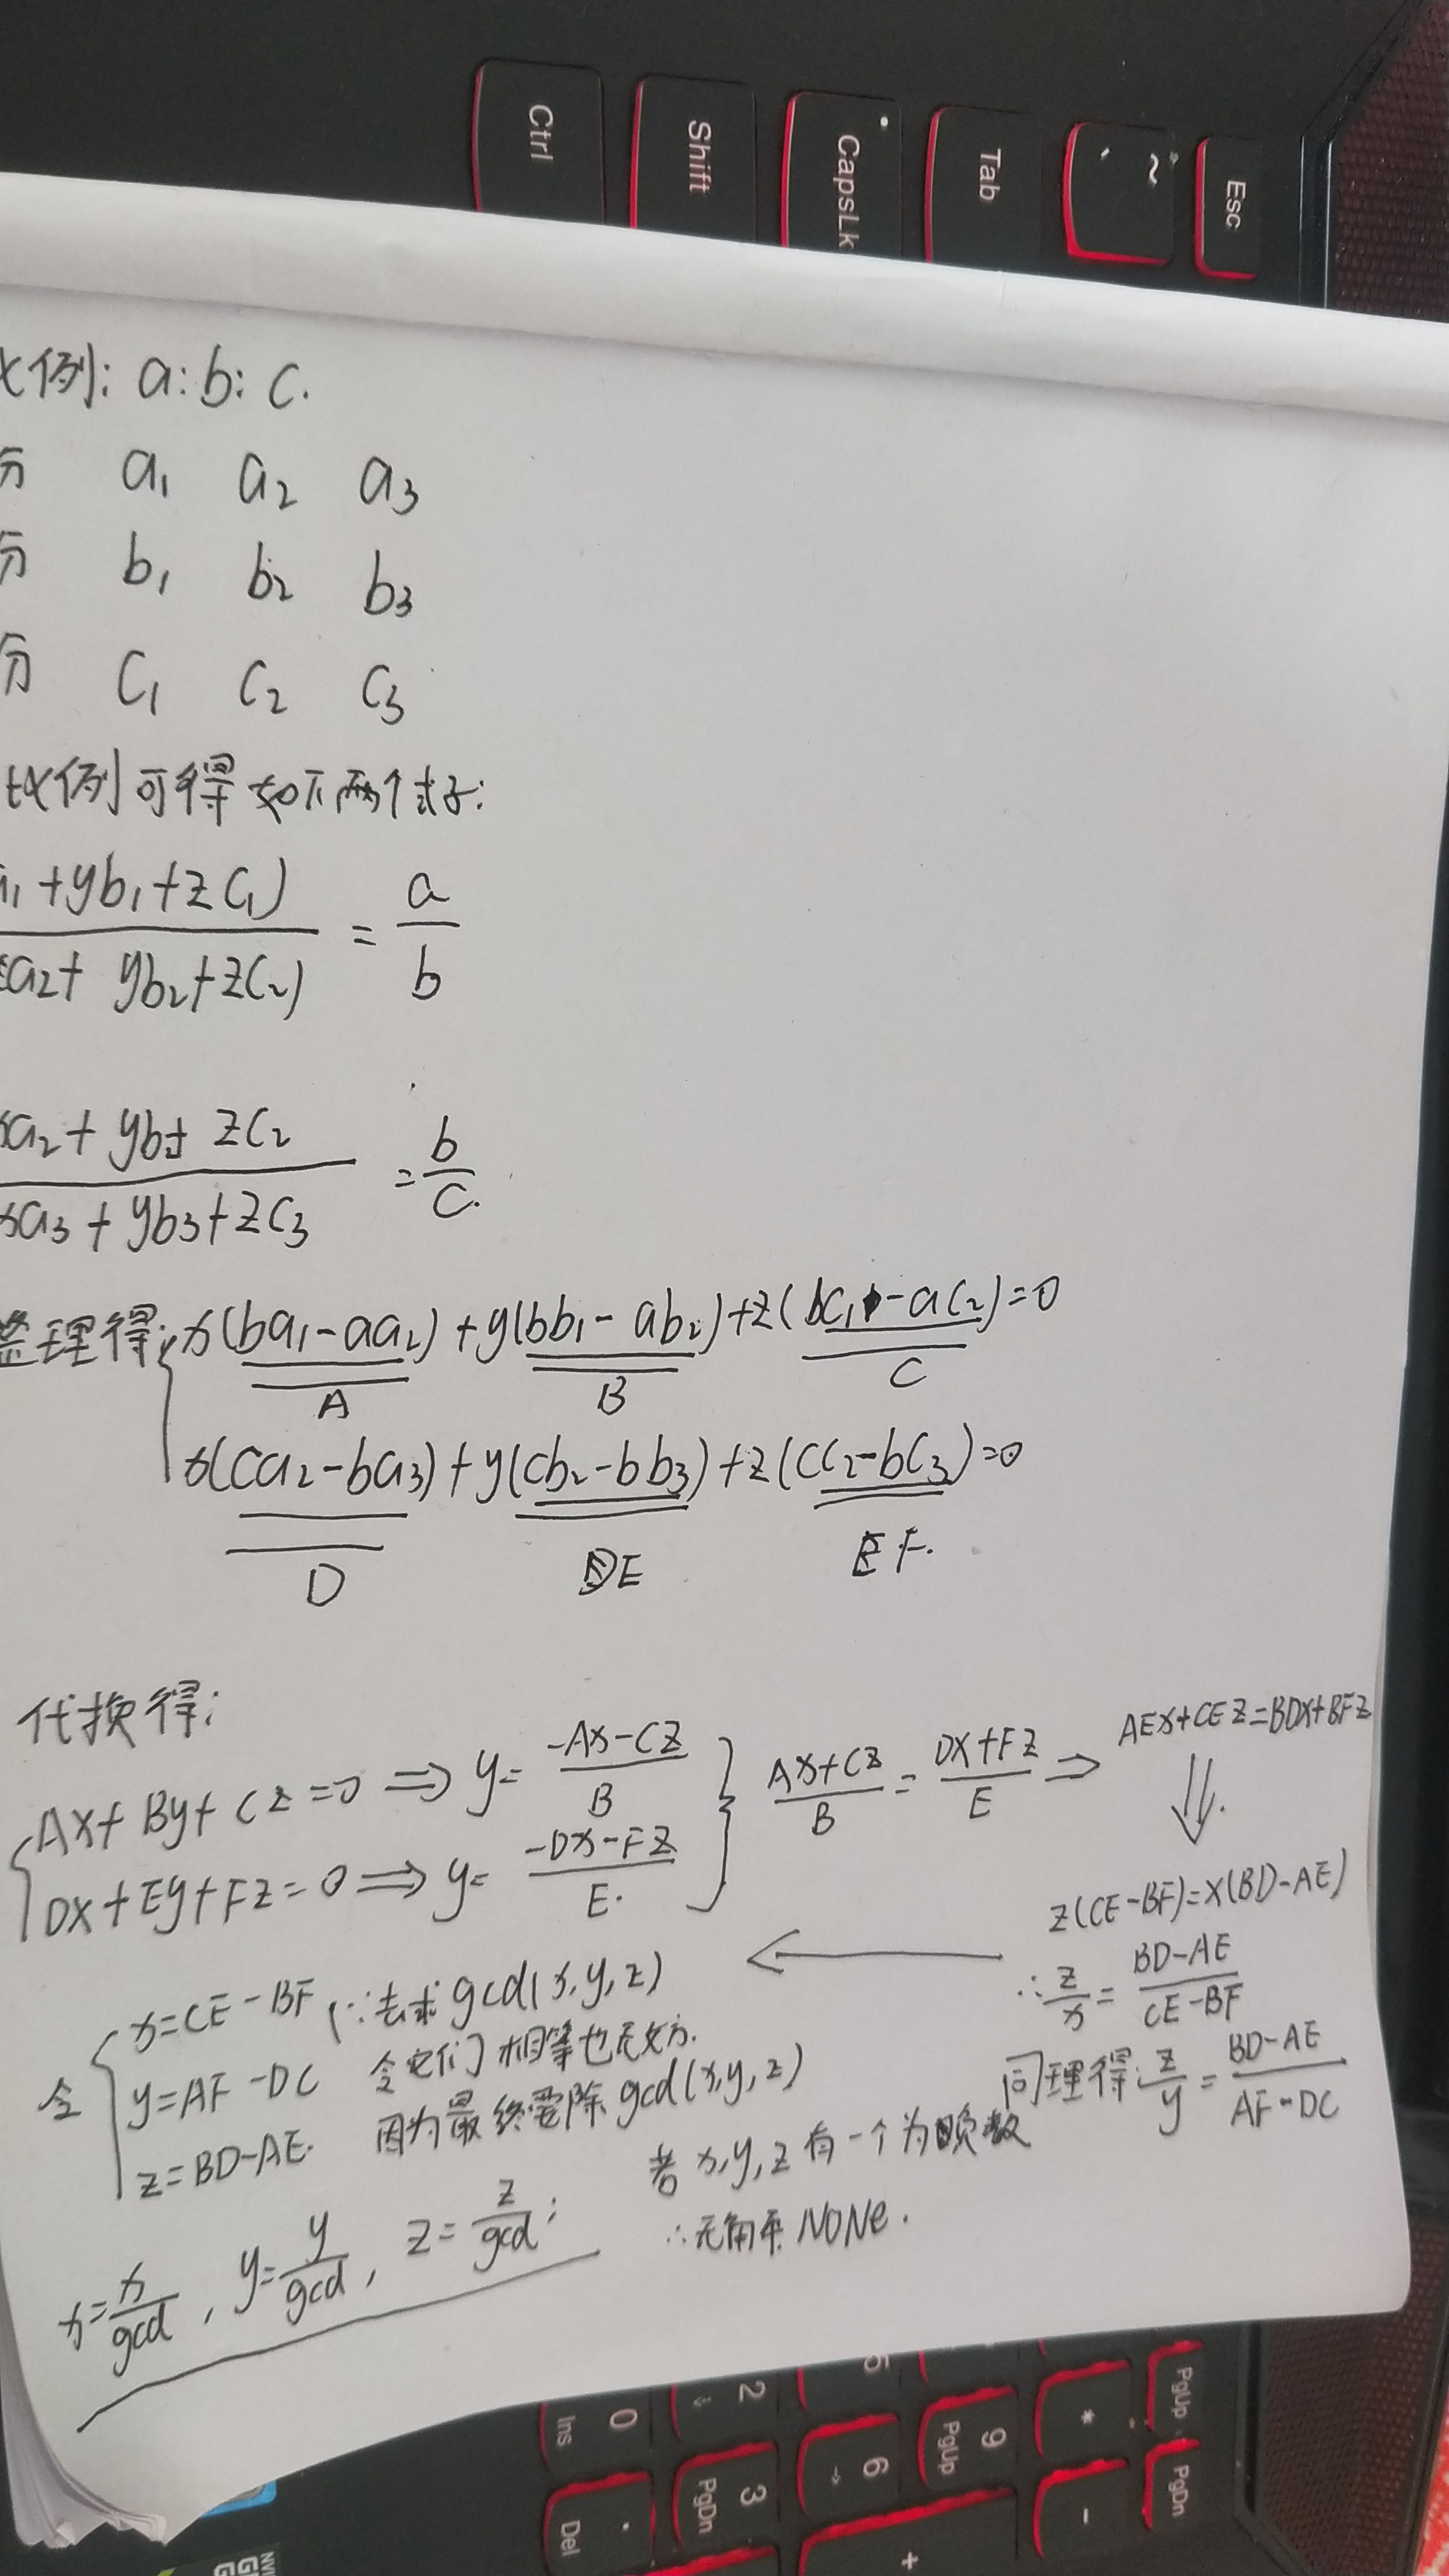 Ctrl
Shift
CapsLk
Tab
~
Esc
例: a:b:c.
a₁ a₂ a₃
b₁ b₂ b₃
份 c₁ c₂ c₃
比例可得如下两个式子:
a₁+yb₁+zc₁) / a₂+yb₂+zc₂) = a/b
xa₂+yb₂+zc₂ / xa₃+yb₃+zc₃ = b/c.
整理得: x(ba₁-aa₂)+y(bb₁-ab₂)+z(bc₁-ac₂)=0
A B C
x(ca₂-ba₃)+y(cb₂-bb₃)+z(cc₂-bc₃)=0
D E F.
代换得:
Ax+By+Cz=0 ⇒ y= -Ax-Cz / B
Dx+Ey+Fz=0 ⇒ y= -Dx-Fz / E.
} Ax+Cz / B = Dx+Fz / E ⇒ AEx+CEz=BDx+BFz
⇓.
z(CE-BF)=x(BD-AE)
∴ z/x = BD-AE / CE-BF
同理得: z/y = BD-AE / AF-DC
←
令 { x=CE-BF (∵去求gcd(x,y,z)
y=AF-DC 令它们相等也无妨.
z=BD-AE. 因为最终要除gcd(x,y,z)
x= x/gcd , y= y/gcd , z= z/gcd ;
若x,y,z有一个为负数
∴无解 NONe.
0 Ins
2 ↓
5
. Del
3 PgDn
6 →
9 PgUp
*
PgUp
+
-
PgDn
NVI